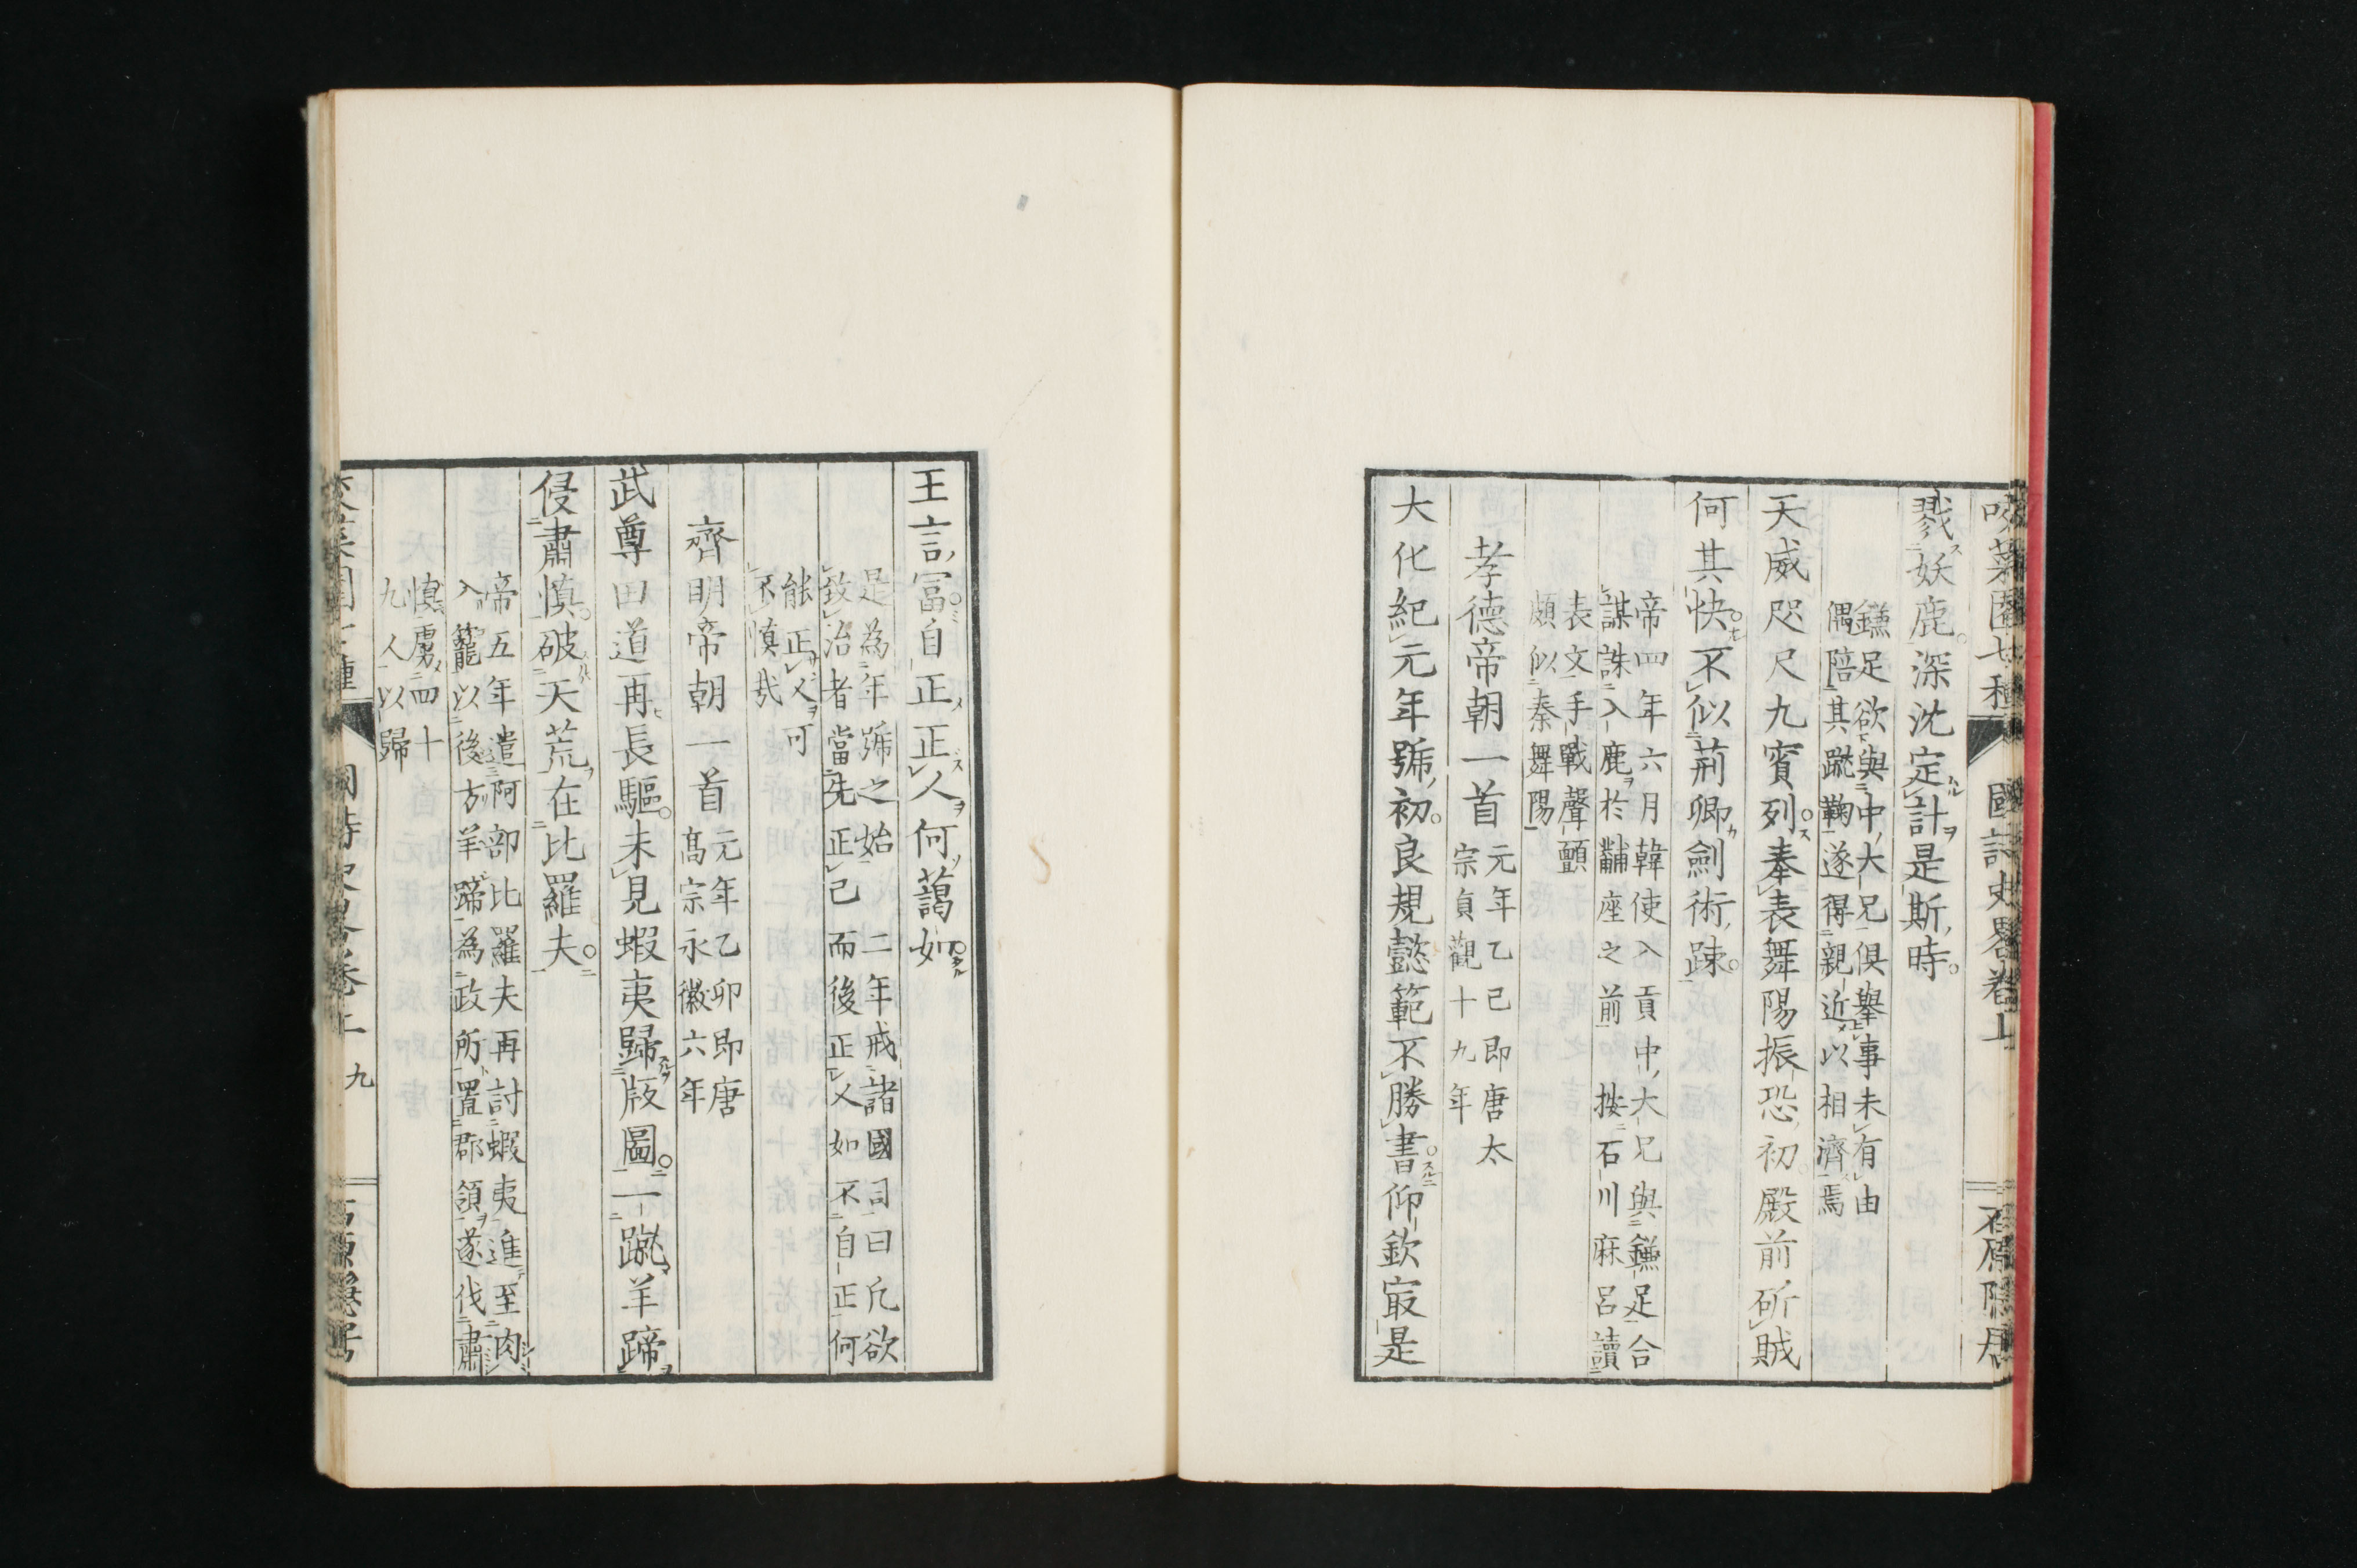 咬菜園七種 國詩史略卷上 石原隱居
戮妖鹿深沈定計是斯時
鎌足欲與中大兄俱舉事未有由
偶陪其蹴鞠遂得親近以相濟焉
天威咫尺九賓列奉表舞陽振恐初殿前斫賊
何其快不似荊卿劍術踈
帝四年六月韓使入貢中大兄與鎌足合
謀誅入鹿於黼座之前按石川麻呂讀
表文手戰聲顫
頗似秦舞陽
孝德帝朝一首
元年乙巳即唐太
宗貞觀十九年
大化紀元年號初良規懿範不勝書仰欽冣是
王言冨自正正人何藹如
是為年號之始二年戒諸國司曰凡欲
致治者當先正己而後正人如不自正何
能正人可
不慎哉
齊明帝朝一首
元年乙卯即唐
髙宗永徽六年
武尊田道再長驅未見蝦夷歸版圖一蹴羊蹄
侵肅慎破天荒在比羅夫
帝五年遣阿部比羅夫再討蝦夷進至肉
入籠以後方羊蹄為政所置郡領遂伐肅
慎虜四十
九人以歸
國詩史畧卷上 九